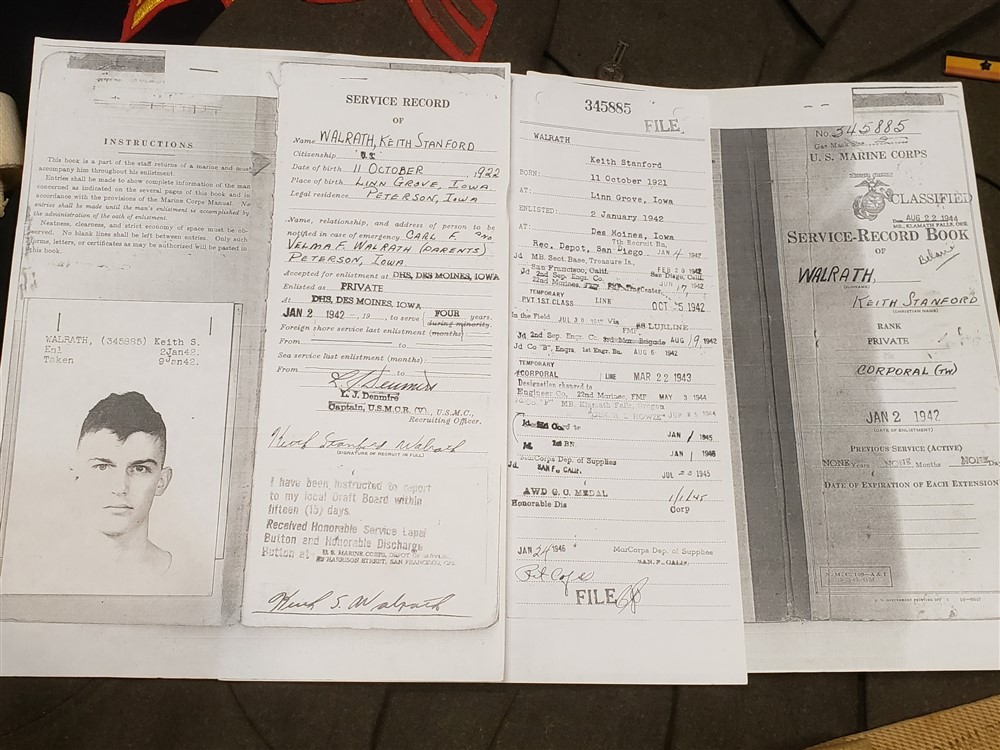 INSTRUCTIONS
This book is a part of the staff returns of a marine and must
accompany him throughout his enlistment.
Entries shall be made to show complete information of the man
concerned as indicated on the several pages of this book and in
accordance with the provisions of the Marine Corps Manual. No
entries shall be made until the man's enlistment is accomplished by
the administration of the oath of enlistment.
Neatness, clearness, and strict economy of space must be ob-
served. No blank lines shall be left between entries. Only such
forms, letters, or certificates as may be authorized will be pasted in
this book.
WALRATH, (345885) Keith S.
Enl 2Jan42.
Taken 9Jan42.
SERVICE RECORD
OF
Name WALRATH, KEITH STANFORD
Citizenship U.S.
Date of birth 11 OCTOBER, 1922
Place of birth LINN GROVE, IOWA
Legal residence PETERSON, IOWA
Name, relationship, and address of person to be
notified in case of emergency CARL F. AND
VELMA F. WALRATH (PARENTS)
PETERSON, IOWA
Accepted for enlistment at DHS, DES MOINES, IOWA
Enlisted as PRIVATE
At DHS, DES MOINES, IOWA
JAN 2 1942, 19, to serve FOUR years.
during minority.
Foreign shore service last enlistment (months)
From to
Sea service last enlistment (months)
From to
L. J. Denmire
L. J. Denmire
Captain, U.S.M.C.R. (V)., U.S.M.C.,
Recruiting Officer.
Keith Stanford Walrath
(SIGNATURE OF RECRUIT IN FULL)
I have been instructed to report
to my local Draft Board within
fifteen (15) days.
Received Honorable Service Lapel
Button and Honorable Discharge
Button at
U. S. MARINE CORPS, DEPOT OF
HARRISON STREET, SAN FRANCISCO, CAL
Keith S. Walrath
345885
FILE
WALRATH
Keith Stanford
BORN:
11 October 1921
AT:
Linn Grove, Iowa
ENLISTED:
2 January 1942
AT:
Des Moines, Iowa
7th Recruit Bn,
Rec. Depot, San Diego JAN 4 1942
Jd M.B. Sect. Base, Treasure Is,
San Francisco, Calif. FEB 20 1942
Jd 2nd Sep. Engr. Co. San Diego, Calif.
22nd Marines, JUN 17 1942
TEMPORARY
PVT 1ST. CLASS LINE OCT 5 1942
In the Field Via
LURLINE
Jd 2nd Sep. Engr. Co 3rd Mar. Brigade AUG 19 1942
Jd Co "B", Engrs, 1st Engr. Bn. AUG 6 1942
TEMPORARY
CORPORAL LINE MAR 22 1943
Designation changed to
Engineer Co, 22nd Marines, FMF MAY 3 1944
MB, Klamath Falls, Oregon
JAN 1 1945
JAN 1 1946
MarCorps Dep. of Supplies
Jd. SAN F. CALIF. 1945
AWD G. C. MEDAL 1/1/45
Honorable Dis Corp
JAN 24 1946 MarCorps Dep. of Supplies
SAN. F. CALIF.
FILE
No. 345885
U. S. MARINE CORPS
CLASSIFIED
Date AUG 22 1944
MB, KLAMATH FALLS, ORE
SERVICE-RECORD BOOK
OF
WALRATH,
(SURNAME)
KEITH STANFORD
(CHRISTIAN NAME)
RANK
PRIVATE
CORPORAL (TW)
JAN 2 1942
(DATE OF ENLISTMENT)
PREVIOUS SERVICE (ACTIVE)
NONE Years NONE Months NONE Days
DATE OF EXPIRATION OF EACH EXTENSION